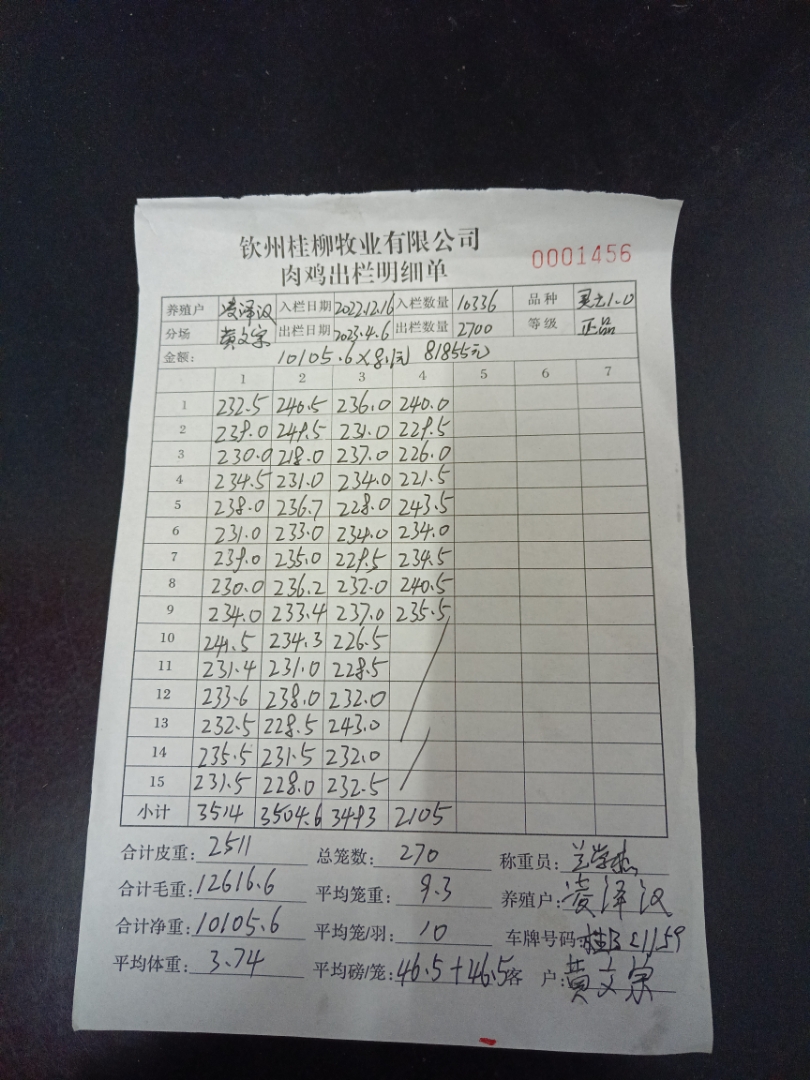 钦州桂柳牧业有限公司
0001456
肉鸡出栏明细单
养殖户 凌泽汉 入栏日期 2022.12.16 入栏数量 10336 品种 1.0
分场 黄文宗 出栏日期 2023.4.6 出栏数量 2700 等级 正品
金额: 10105.6×8.1元 81855元
1 2 3 4 5 6 7
1 232.5 240.5 236.0 240.0
2 239.0 249.5 231.0 229.5
3 230.0 218.0 237.0 226.0
4 234.5 231.0 234.0 221.5
5 238.0 236.7 228.0 243.5
6 231.0 233.0 234.0 234.0
7 239.0 235.0 229.5 234.5
8 230.0 236.2 232.0 240.5
9 234.0 233.4 237.0 235.5
10 241.5 234.3 226.5
11 231.4 231.0 228.5
12 233.6 238.0 232.0
13 232.5 228.5 243.0
14 235.5 231.5 232.0
15 231.5 228.0 232.5
小计 3514 3504.6 3493 2105
合计皮重: 2511 总笼数: 270 称重员:
合计毛重: 12616.6 平均笼重: 9.3 养殖户: 凌泽汉
合计净重: 10105.6 平均笼/羽: 10 车牌号码
平均体重: 3.74 平均磅/笼: 46.5+46.5 客户: 黄文宗